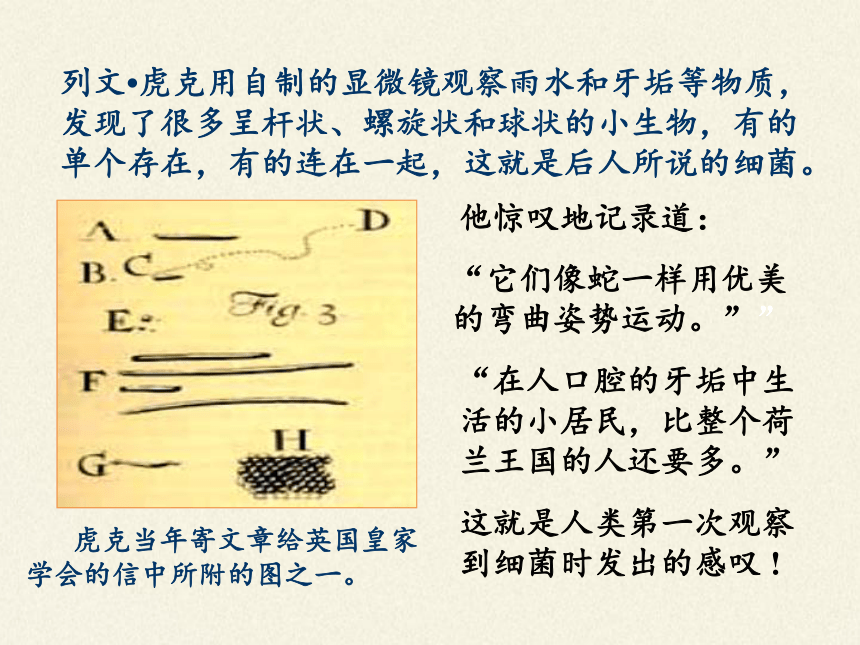 列文•虎克用自制的显微镜观察雨水和牙垢等物质，
发现了很多呈杆状、螺旋状和球状的小生物，有的
单个存在，有的连在一起，这就是后人所说的细菌。
A
D
B.
C
E
Fig. 3
F
H
G
虎克当年寄文章给英国皇家
学会的信中所附的图之一。
他惊叹地记录道：
“它们像蛇一样用优美
的弯曲姿势运动。””
“在人口腔的牙垢中生
活的小居民，比整个荷
兰王国的人还要多。”
这就是人类第一次观察
到细菌时发出的感叹！